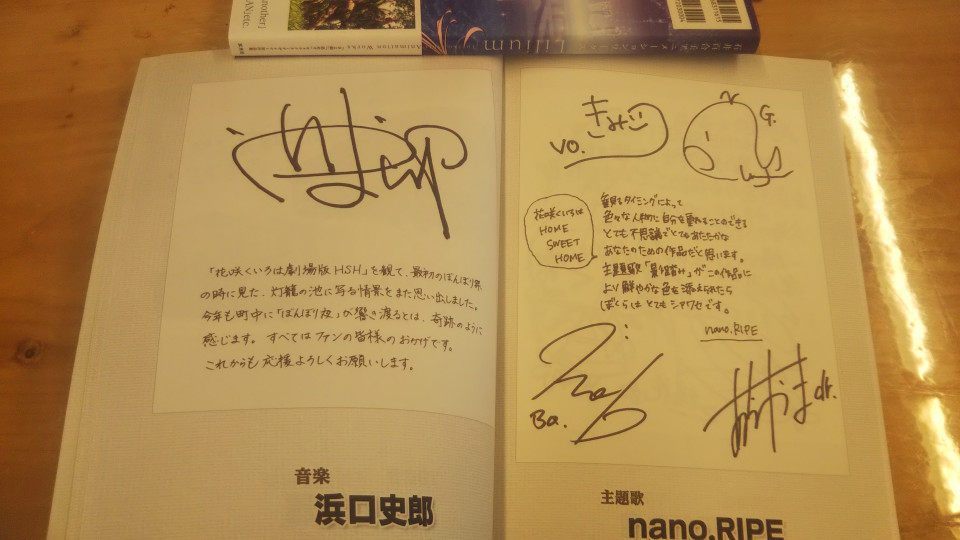 Lilium
「花咲くいろは劇場版HSH」を観て、最初のぼんぼり祭
の時に見た、灯籠の池に写る情景をまた思い出しました。
今年も町中に「ぼんぼり夜」が響き渡るとは、奇跡のように
感じます。すべてはファンの皆様のおかげです。
これからも応援よろしくお願いします。
音楽
浜口史郎
きみコ
vo.
G.
花咲くいろは
HOME
SWEET
HOME
観るタイミングによって
色々な人物に自分を重ねることのできる
とても不思議でとてもあたたかな
あなたのための作品だと思います。
主題歌「影踏み」がこの作品に
より鮮やかな色を添えられたら
ぼくらはとてもシアワセです。
nano.RIPE
Ba.
dr.
主題歌
nano.RIPE